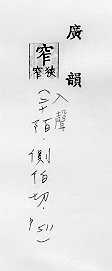 廣韻
窄狹窄
入聲
(二十陌·側伯切·P511)